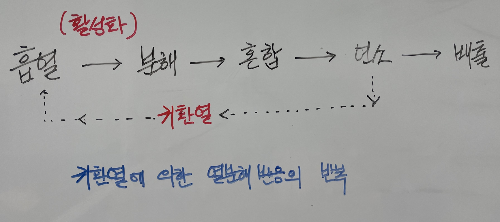 (활성화)
흡열 → 분해 → 혼합 → 연소 → 배출
귀환열
귀환열에 의한 열분해 반응의 반복